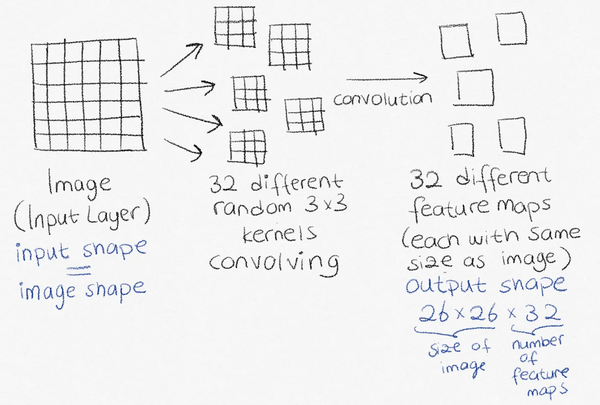 Image
(Input Layer)
input shape
=
image shape
32 different
random 3x3
kernels
convolving
convolution
32 different
feature maps
(each with same
size as image)
output shape
26 x 26 x 32
size of
image
number
of
feature
maps